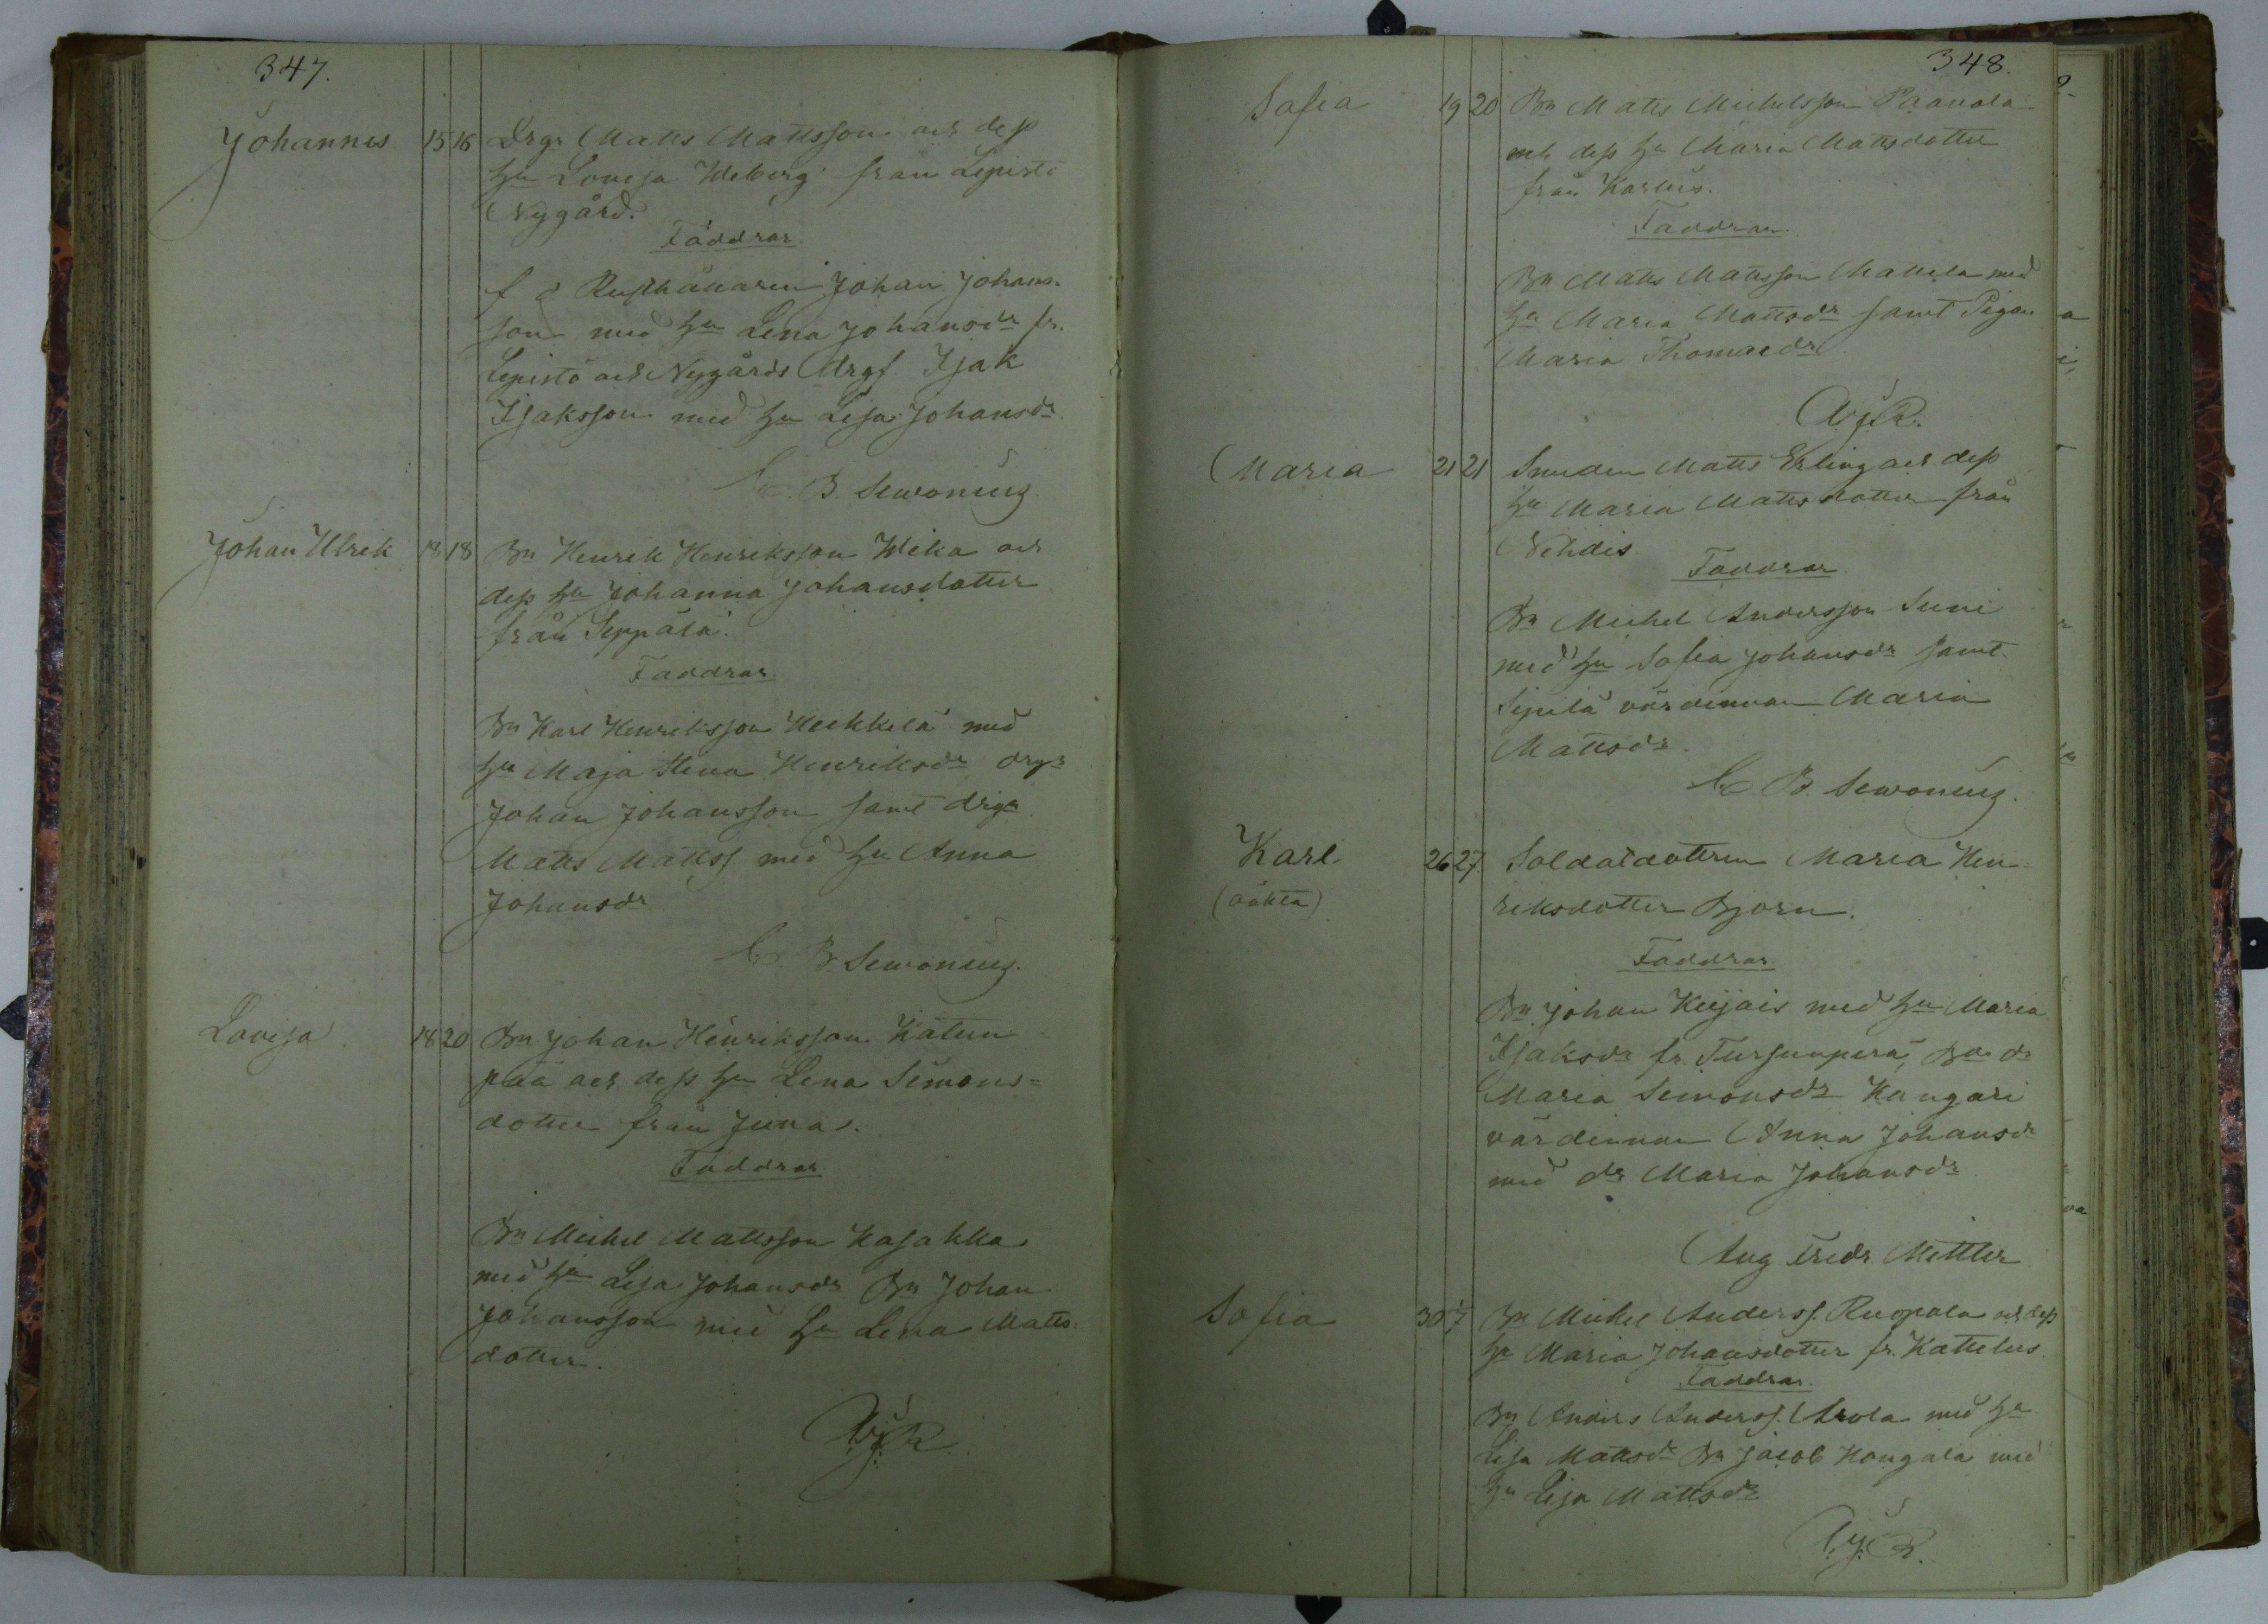 347.
Johannes 15 16 Drgr Matts Mattsson och dess
hu Lovisa Weberg från Lepistö
Nygård.
Faddrar
f d Rusthållaren Johan Johans-
son med hu Lena Johansdr fr.
Lepistö och Nygårds Drgs. Isak
Isaksson med hu Lisa Johansdr
C. B. Sewoning
Johan Ulrik 18 18 Bn Henrik Henriksson Wika och
dess hu Johanna Johansdotter
från Seppälä.
Faddrar
Bn Karl Henriksson Heikkilä med
hu Maja Stina Henriksdr drgr
Johan Johansson samt drgn
Matts Mattss. med hu Anna
Johansdr
C. B. Sewoning.
Lovisa 18 20 Bn Johan Henriksson Katim
pää och dess hu Lena Simons=
dotter från Juva.
Faddrar
Bn Michel Mattsson Kasakka
med hu Lisa Johansdr Bn Johan
Johansson med hu Lena Matts-
dotter.
348.
Sofia 19 20 Bn Matts Michelsson Paavola
och dess hu Maria Mattsdotter
från Karhis.
Faddrar.
Bn Matts Mattsson Mattila med
hu Maria Mattsdr samt Pigan
Maria Thomasdr
Maria 21 21 Smeden Matts Erling och dess
hu Maria Mattsdotter från
Nehdis
Faddrar
Bn Michel Andersson Suni
med hu Sofia Johansdr samt
Sipilä värdinnan Maria
Mattsdr.
C B. Sewoning.
Karl. 26 27 Soldatdottern Maria Hen-
(oäkta) riksdotter Björn.
Faddrar
Bn Johan Keijais med hu Maria
Isaksdr fr. Tursunperä, Bn dr
Maria Simonsdr Kangari
värdinnan Anna Johansdr
med dr Maria Johansdr
Aug Fredr Mettler
Sofia 30 7 Bn Mickel Anderss. Ruopola och dess
hu Maria Johansdotter fr. Kattelus.
Faddrar.
Bn Anders Anderss. Arola med hu
Lisa Mattsdr Bn Jacob Hongala med
hu Lisa Mattsdr